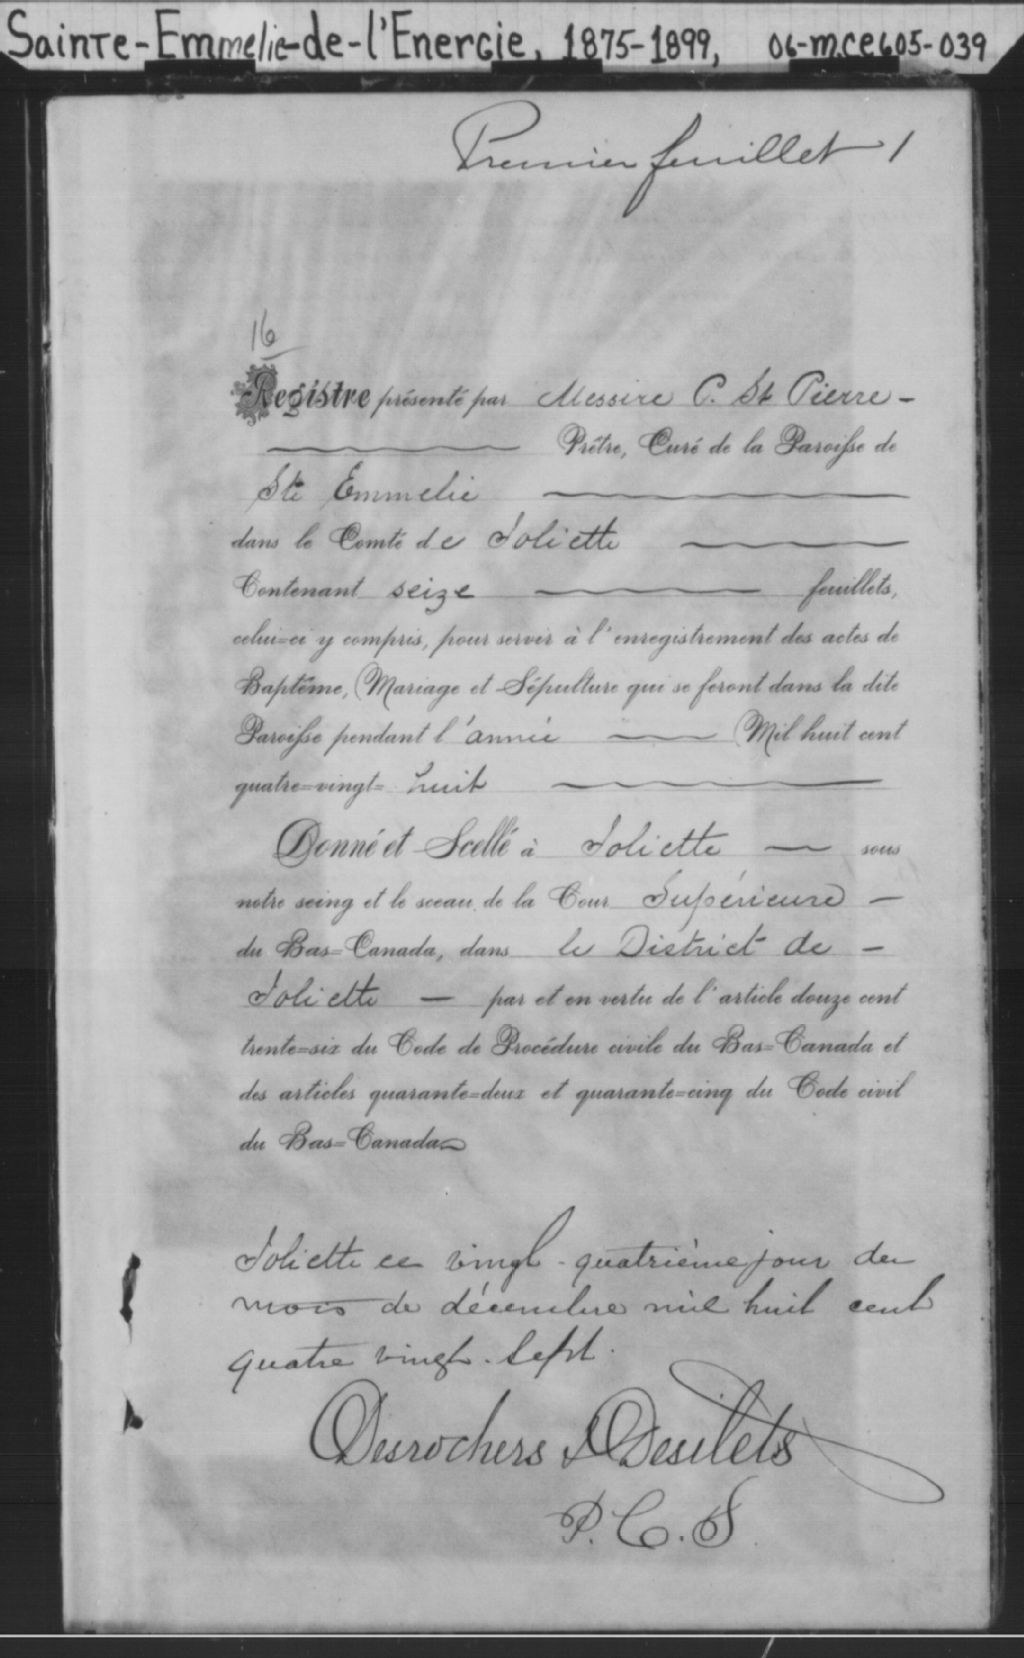 Sainte-Emmelie-de-l'Energie, 1875-1899, 06-M.CE605-039
Premier feuillet 1
16
Registre présenté par Messire C. St Pierre -
Prêtre, Curé de la Paroisse de
Ste Emmelie
dans le Comté de Joliette
Contenant seize feuillets,
celui=ci y compris, pour servir à l'enregistrement des actes de
Baptême, Mariage et Sépulture qui se feront dans la dite
Paroisse pendant l'année Mil huit cent
quatre=vingt= huit
Donné et Scellé à Joliette — sous
notre seing et le sceau de la Cour Supérieure -
du Bas=Canada, dans le District de -
Joliette — par et en vertu de l'article douze cent
trente=six du Code de Procédure civile du Bas=Canada et
des articles quarante=deux et quarante=cinq du Code civil
du Bas=Canada
Joliette ce vingt-quatrième jour du
mois de décembre mil huit cent
quatre vingt-sept.
Desrochers & Desilets
P.C.S